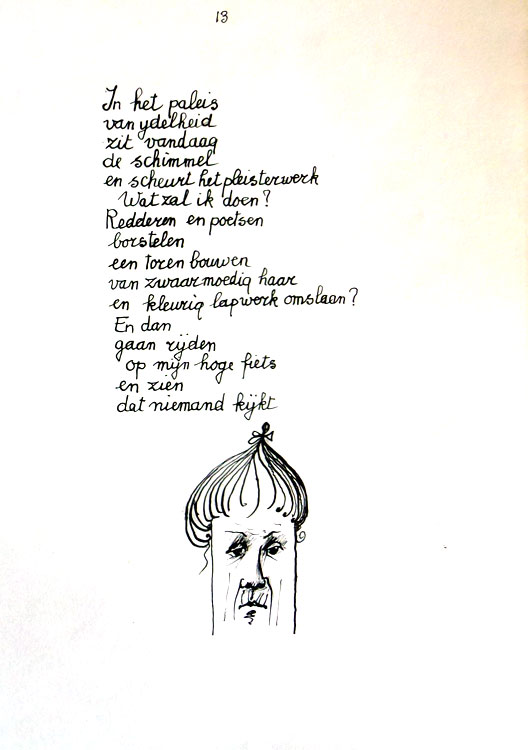 13
In het paleis
van ydelheid
zit vandaag
de schimmel
en scheurt het pleisterwerk
Wat zal ik doen?
Redderen en poetsen
borstelen
een toren bouwen
van zwaarmoedig haar
en kleurig lapwerk omslaan?
En dan
gaan rijden
op mijn hoge fiets
en zien
dat niemand kijkt